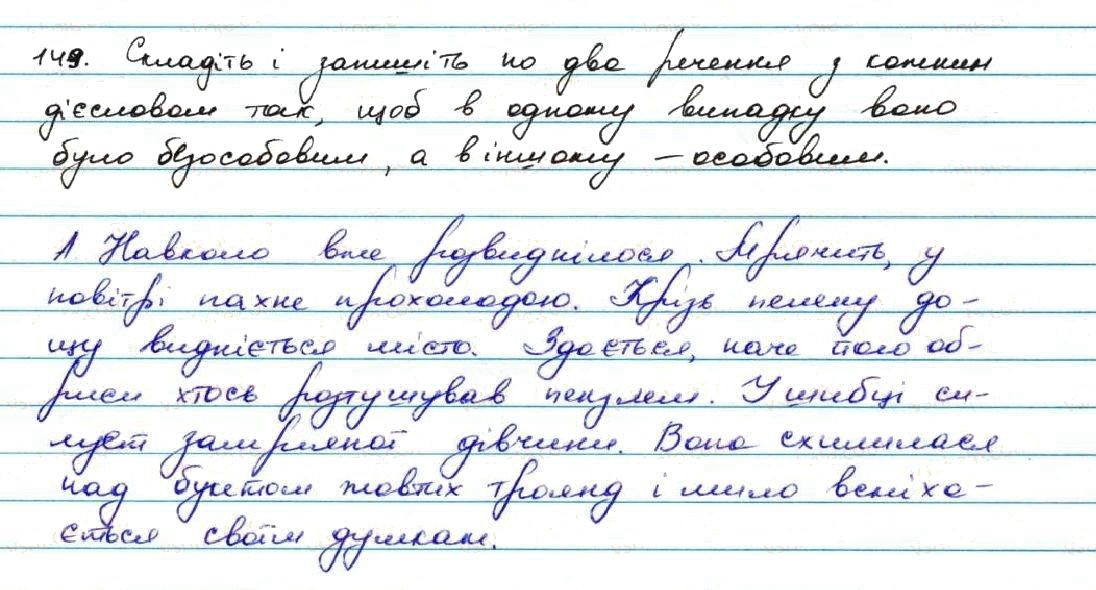 149. Складіть і запишіть по два речення з кожним
дієсловом так, щоб в одному випадку воно
було безособовим, а в іншому – особовим.
1 Навколо вже розвиднілося. Мрячить, у
повітрі пахне прохолодою. Крізь пелену до-
щу видніється місто. Здається, наче його об-
риси хтось розтушував пензлем. У шибці си-
луєт замріяної дівчини. Вона схилилася
над букетом жовтих троянд і мило всміха-
ється своїм думкам.